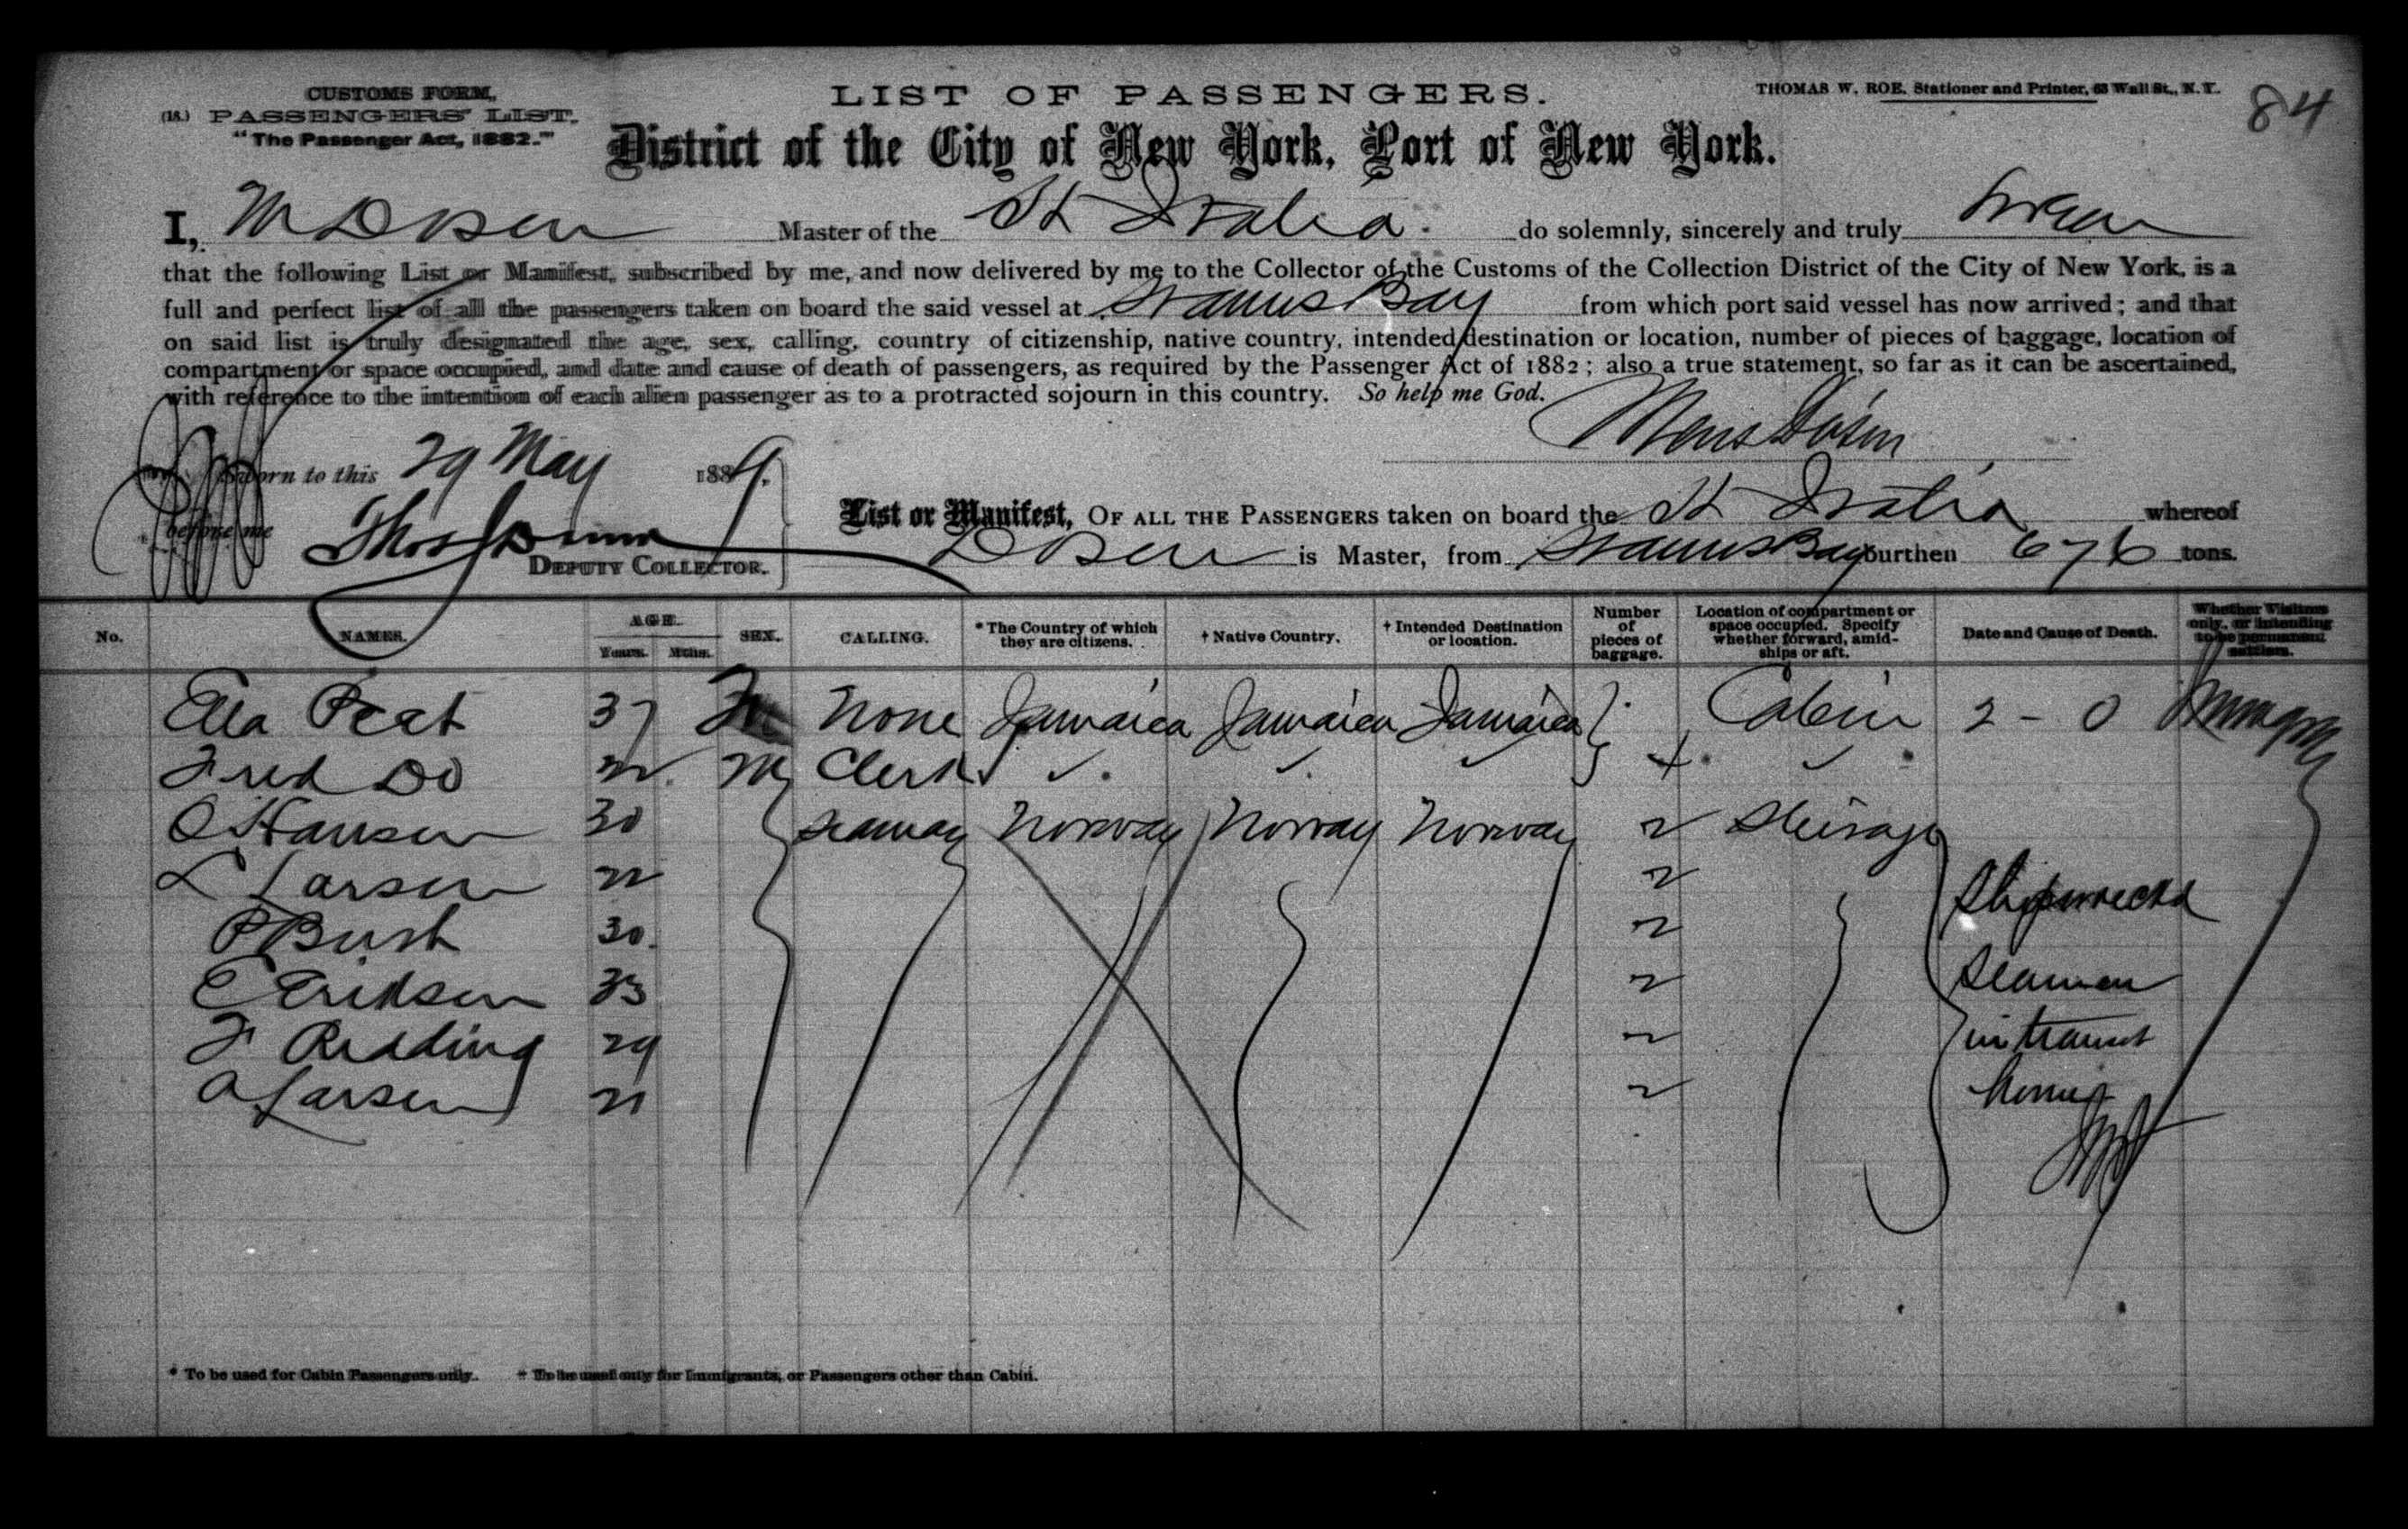 CUSTOMS FORM,
(18.) PASSENGERS' LIST.
"The Passenger Act, 1882."
LIST OF PASSENGERS.
THOMAS W. ROE, Stationer and Printer, 63 Wall St., N.Y.
84
District of the City of New York, Port of New York.
I, M Dosen Master of the St Iralia. do solemnly, sincerely and truly swear
that the following List or Manifest, subscribed by me, and now delivered by me to the Collector of the Customs of the Collection District of the City of New York, is a
full and perfect list of all the passengers taken on board the said vessel at Bay from which port said vessel has now arrived; and that
on said list is truly designated the age, sex, calling, country of citizenship, native country, intended destination or location, number of pieces of baggage, location of
compartment or space occupied, and date and cause of death of passengers, as required by the Passenger Act of 1882; also a true statement, so far as it can be ascertained,
with reference to the intention of each alien passenger as to a protracted sojourn in this country. So help me God.
Sworn to this 29 May 1889.
before me
DEPUTY COLLECTOR.
List or Manifest, OF ALL THE PASSENGERS taken on board the St Iralia whereof
Dosen is Master, from Bay burthen 676 tons.
No. NAMES. AGE. Years. Mths. SEX. CALLING. * The Country of which they are citizens. † Native Country. † Intended Destination or location. Number of pieces of baggage. Location of compartment or space occupied. Specify whether forward, amidships or aft. Date and Cause of Death. Whether Visitors only, or intending to be permanent settlers.
Ella Peat 37 None Jamaica Jamaica Jamaica Cabin 2 - 0
Fred Do 22 M Clerk ✓ ✓ ✓ ✓
O Hansen 30 seaman Norway Norway Norway 2 Steirage
L Larsen 22 2 Shipwreckd
P Bush 30 2
C Eriksen 33 2 Seamen
F Redding 29 2 in transit
A Larsen 21 2 home
* To be used for Cabin Passengers only. † To be used only for Immigrants, or Passengers other than Cabin.